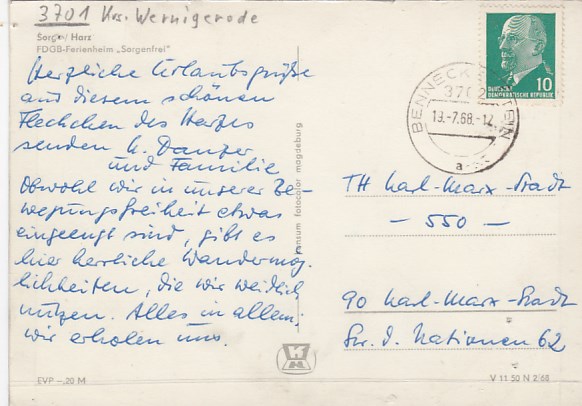 3701 Krs. Wernigerode
Sorge / Harz
FDGB-Ferienheim „Sorgenfrei"
Herzliche Urlaubsgrüße
aus diesem schönen
Fleckchen des Harzes
senden K. Danzer
und Familie
Obwohl wir in unserer Be-
wegungsfreiheit etwas
eingeengt sind, gibt es
hier herrliche Wandermög-
lichkeiten, die wir weidlich
nutzen. Alles in allem:
wir erholen uns.
EVP –.20 M
konsum fotocolor magdeburg
DEUTSCHE
DEMOKRATISCHE REPUBLIK
10
BENNECKENSTEIN
3702
19.-7.68.-12
a
TH Karl-Marx-Stadt
– 550 –
90 Karl-Marx-Stadt
Str. d. Nationen 62
V 11 50 N 2/68